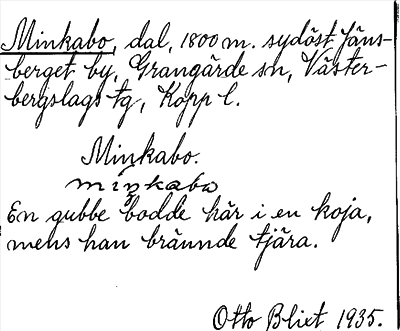 Minkabo, dal, 1800 m. sydöst Jäns-
berget by, Grangärde sn, Väster-
bergslags tg, Kopp l.
Minkabo.
miŋkabω
En gubbe bodde här i en koja,
mens han brännde tjära.
Otto Blixt 1935.